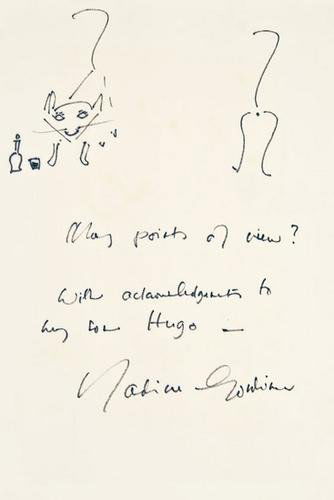 Many points of view?
With acknowledgements to
my son Hugo —
Nadine Gordimer